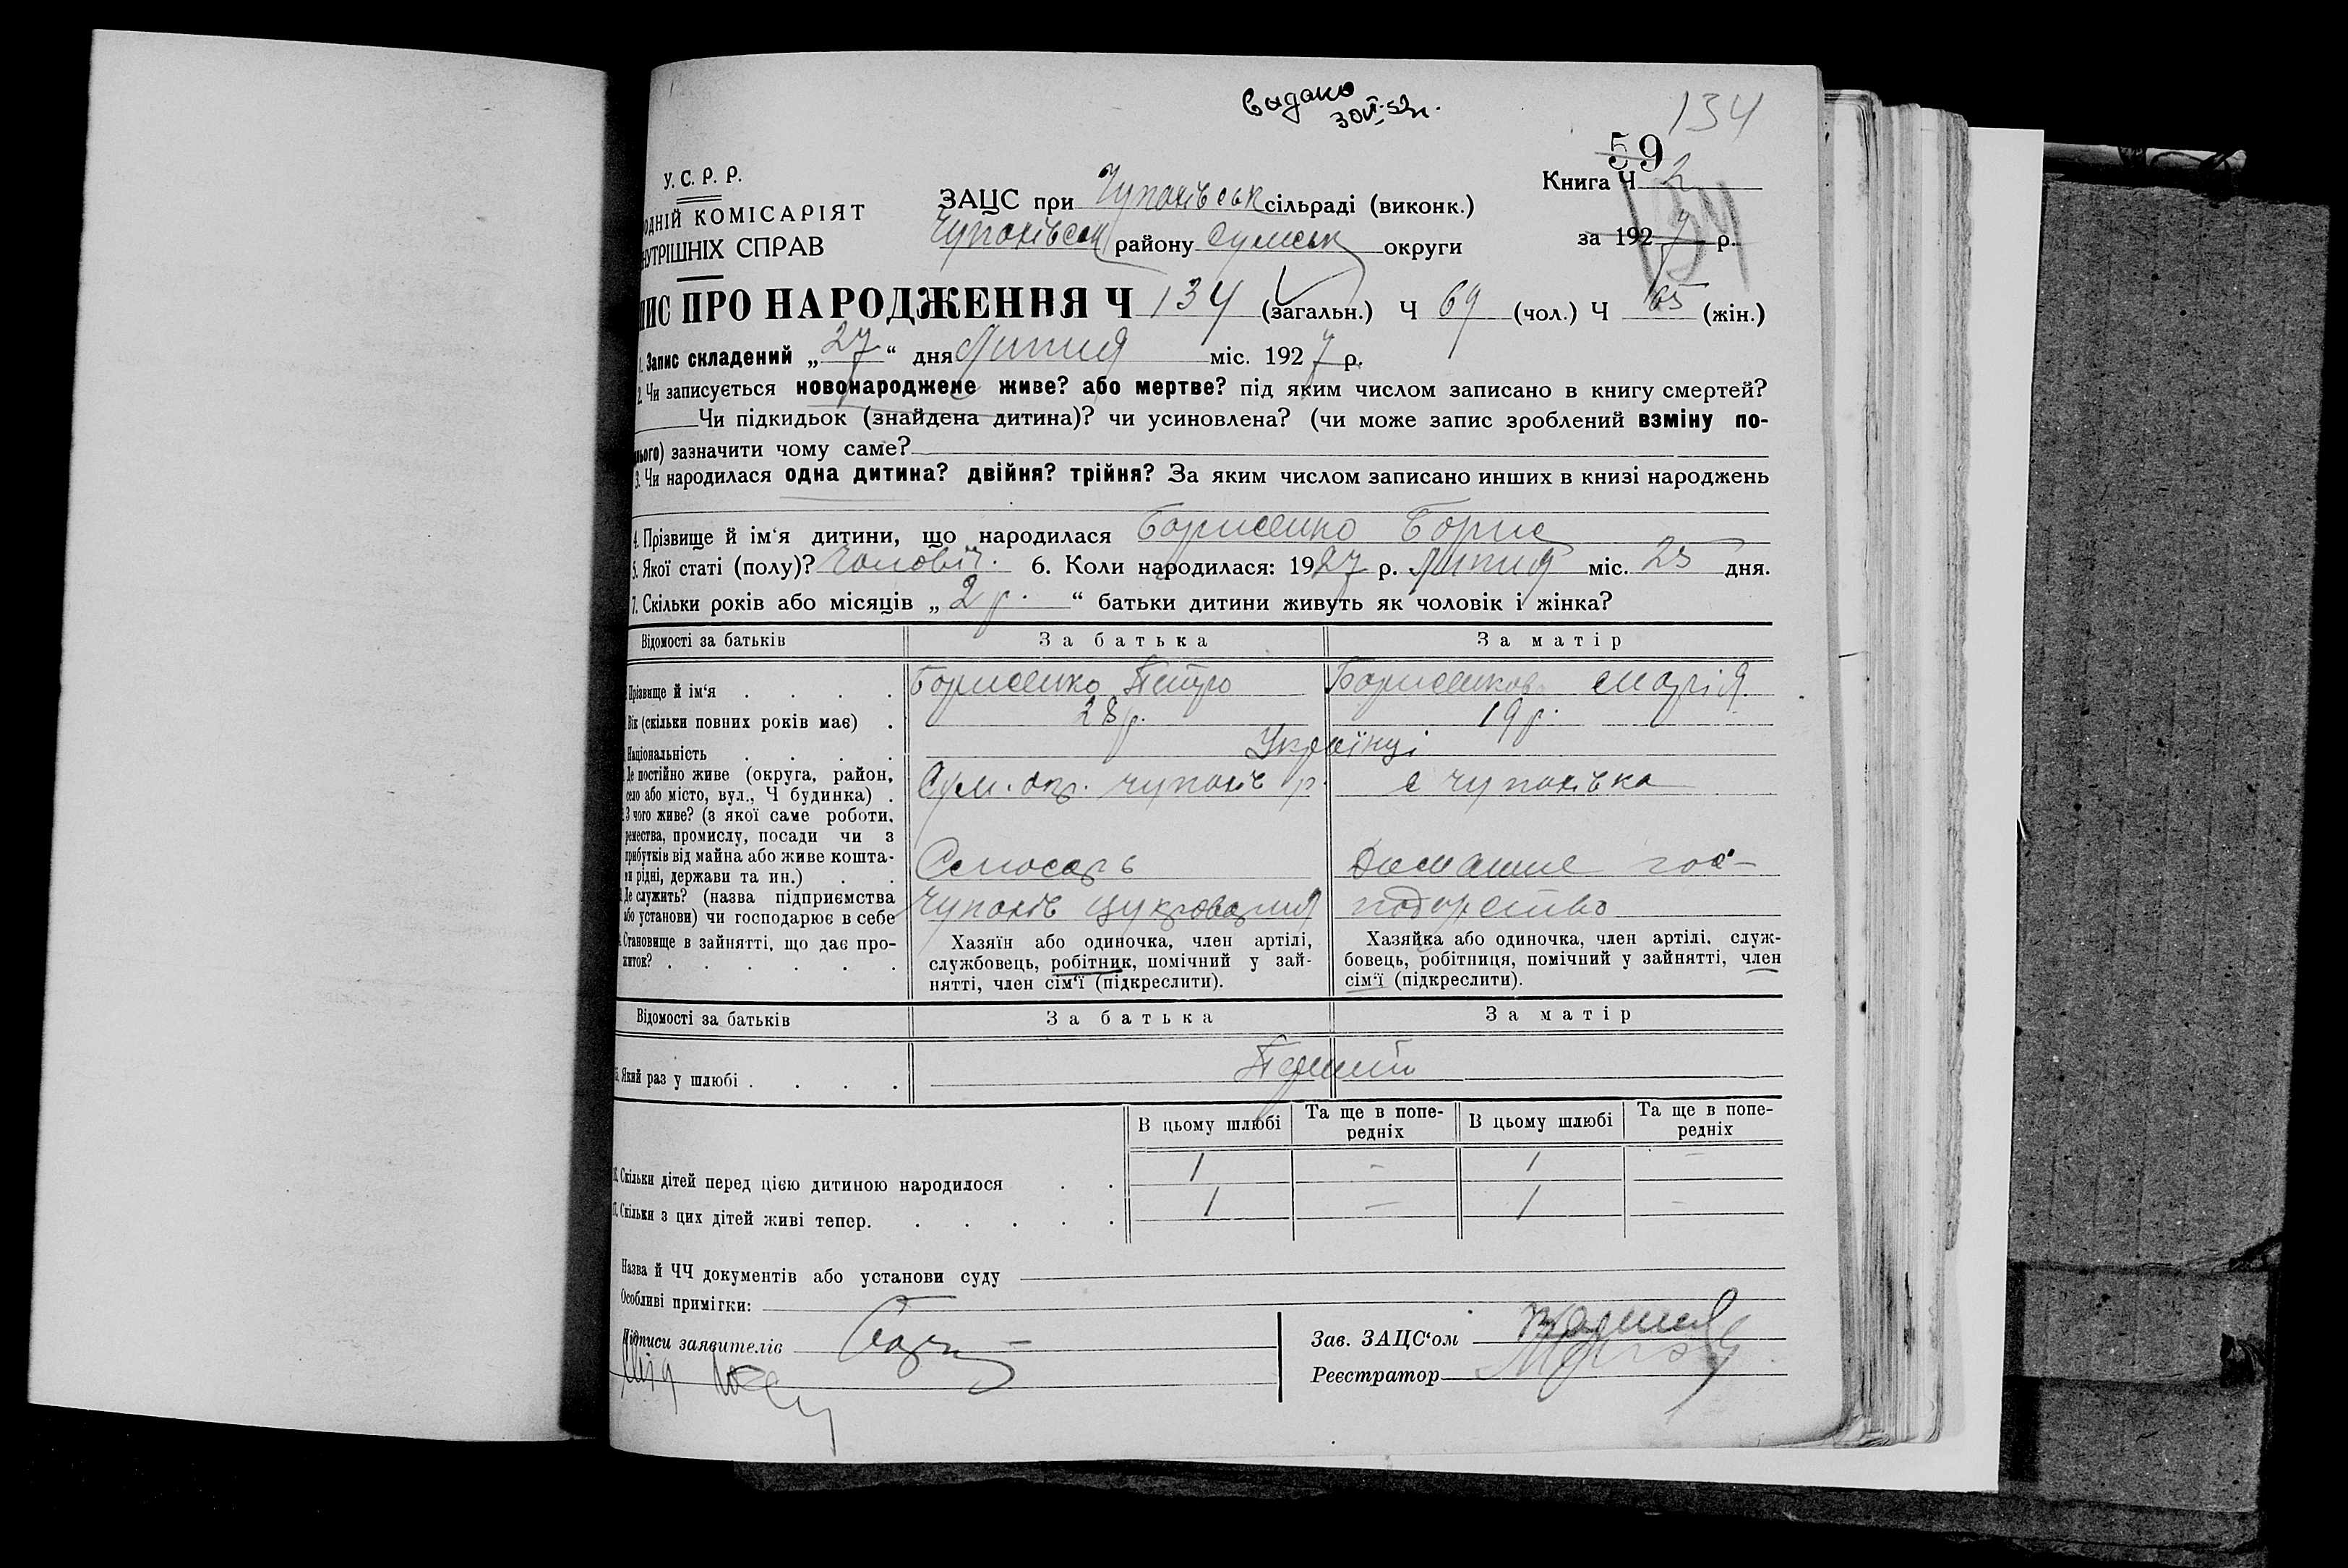 Видано
30 VI-52р.
134
59
У. С. Р. Р.
ОДНІЙ КОМІСАРІЯТ
НУТРІШНІХ СПРАВ
ЗАЦС при Чупахівськ сільраді (виконк.)
Чупахівськ району Сумськ округи
Книга Ч 2
за 1927 р.
134
ПИС ПРО НАРОДЖЕННЯ Ч 134 (загальн.) Ч 69 (чол.) Ч 65 (жін.)
1. Запис складений „27“ дня Липня міс. 1927 р.
2. Чи записується новонароджене живе? або мертве? під яким числом записано в книгу смертей?
Чи підкидьок (знайдена дитина)? чи усиновлена? (чи може запис зроблений взміну по-
нього) зазначити чому саме?
3. Чи народилася одна дитина? двійня? трійня? За яким числом записано инших в книзі народжень
4. Прізвище й ім‘я дитини, що народилася Борисенко Борис
5. Якої статі (полу)? Чоловіч. 6. Коли народилася: 1927 р. Липня міс. 25 дня.
7. Скільки років або місяців „2 р.“ батьки дитини живуть як чоловік і жінка?
Відомості за батьків За батька За матір
Прізвище й ім‘я . . . . Борисенко Петро Борисенкова Марія
Вік (скільки повних років має) . 28 р. 19 р.
Національність . . . . Українці
Де постійно живе (округа, район,
село або місто, вул., Ч будинка) . Сум. окр. Чупахів р. с Чупахівка
З чого живе? (з якої саме роботи,
ремества, промислу, посади чи з
прибутків від майна або живе кошта-
ми рідні, держави та ин.) . . Слюсарь Домашнє гос-
Де служить? (назва підприємства
або установи) чи господарює в себе Чупахів цукроварня подарство
Становище в зайнятті, що дає про-
житок? . . . . . .
Хазяїн або одиночка, член артілі,
службовець, робітник, помічний у зай-
нятті, член сім‘ї (підкреслити).
Хазяйка або одиночка, член артілі, служ-
бовець, робітниця, помічний у зайнятті, член
сім‘ї (підкреслити).
Відомості за батьків За батька За матір
Який раз у шлюбі . . . . Перший
В цьому шлюбі Та ще в попе-
редніх В цьому шлюбі Та ще в попе-
редніх
Скільки дітей перед цією дитиною народилося . . 1 - 1 -
Скільки з цих дітей живі тепер. . . . . . 1 - 1 -
Назва й ЧЧ документів або установи суду
Особливі примітки:
Підписи заявителів
Зав. ЗАЦС‘ом
Реєстратор